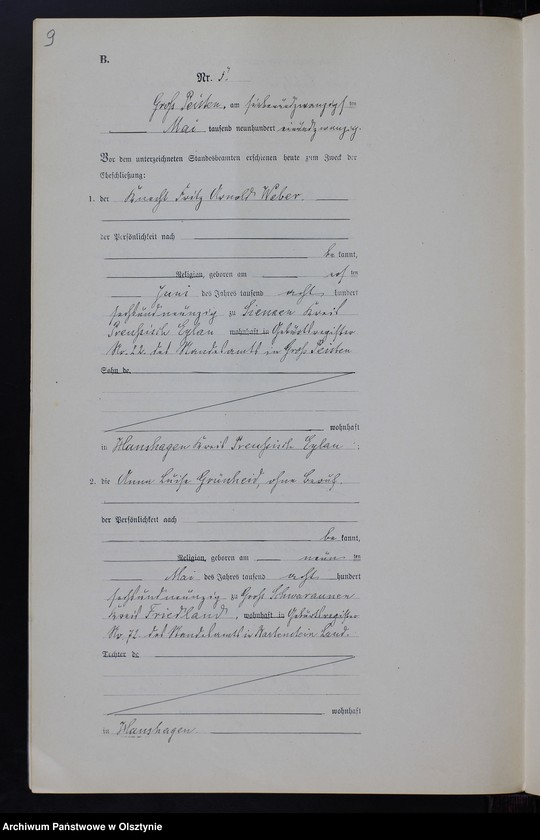 9
B.
Nr. 5.
Groß Peisten, am siebenundzwanzigsten
Mai tausend neunhundert einundzwanzig.
Vor dem unterzeichneten Standesbeamten erschienen heute zum Zweck der
Eheschließung:
1. der Knecht Fritz Arnold Weber.
der Persönlichkeit nach
be kannt,
Religion, geboren am ten
Juni des Jahres tausend acht hundert
sechsundneunzig zu Kreis
Preußisch Eylau wohnhaft in Geburtsregister
No. 22 des Standesamts in Groß Peisten
Sohn de
wohnhaft
in Hanshagen Kreis Preußisch Eylau.
2. die Anna Luise Grünheid, ohne Beruf.
der Persönlichkeit nach
be kannt,
Religion, geboren am neun ten
Mai des Jahres tausend acht hundert
sechsundneunzig zu Groß Schwaraunen
Kreis Friedland, wohnhaft in Geburtsregister
No. 71 des Standesamts in Bartenstein Land.
Tochter de
wohnhaft
in Hanshagen
Archiwum Państwowe w Olsztynie